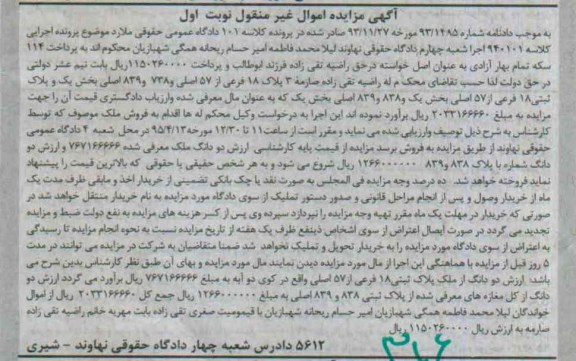 آگهی مزایده اموال غیر منقول نوبت اول
به موجب دادنامه شماره ۹۳/۱۴۸۵ مورخه ۹۳/۱۱/۲۷ صادر شده در پرونده کلاسه ۱۰۱ دادگاه عمومی حقوقی ملارد موضوع پرونده اجرایی
کلاسه ۹۴۰۱۰۱ اجرا شعبه چهارم دادگاه حقوقی نهاوند لیلا محمد فاطمه امیر حسام ریحانه همگی شهبازیان محکوم اند به پرداخت ۱۱۴
سکه تمام بهار آزادی به عنوان اصل خواسته درحق راضیه تقی زاده فرزند ابوطالب و پرداخت ۱۱۵۰۲۶۰۰۰۰ریال بابت نیم عشر دولتی
در حق دولت لذا حسب تقاضای محکم له راضیه تقی زاده صازمة ۳ پلاک ۱۸ فرعی از ۵۷ اصلی و۷۳۸ و۸۳۹ اصلی بخش یک و پلاک
ثبتی۱۸ فرعی از۵۷ اصلی بخش یک و۸۳۸ و۸۳۹ اصلی بخش یک که به عنوان مال معرفی شده وارزیاب دادگستری قیمت آن را جهت
مزایده به مبلغ ۲۰۳۳۱۶۶۶۶۰ ریال برآورد نموده اند این اجرا به درخواست وکیل محکم له ها اقدام به فروش ملک موصوف که توسط
کارشناس به شرح ذیل توصیف وارزیابی شده می نماید و مقرر است از ساعت۱۱ تا ۱۲/۳۰ مورخه ۹۵/۴/۱۳ در محل شعبه ۴ دادگاه عمومی
حقوقی نهاوند از طریق مزایده به فروش برسد مزایده از قیمت پایه کارشناسی ارزش دو دانگ ملک معرفی شده ۷۶۷۱۶۶۶۶۶ و ارزش دو
دانگ شماره با پلاک ۸۳۸ و۸۳۹ ۱۲۶۶۰۰۰۰۰۰ ریال شروع می شود و به هر شخص حقیقی یا حقوقی که بالاترین قیمت را پیشنهاد
نماید فروخته خواهد شد. ده درصد وجه مزایده فی المجلس به صورت نقد یا چک بانکی تضمینی از خریدار اخذ و مابقی ظرف مدت یک
ماه از خریدار وصول و پس از انجام مراحل قانونی و صدور دستور تملیک از سوی دادگاه مورد مزایده به نام خریدار منتقل خواهد شد در
صورتی که خریدار در مهلت یک ماه مقرر تهیه وجه مزایده را نپردازد سپرده وی پس از کسر هزینه های مزایده به نفع دولت ضبط و مزایده
تجدید می گردد در صورت آیصال اعتراض از سوی اشخاص ذینفع ظرف یک هفته از تاریخ مزایده نسبت به نحوه انجام مزایده تا رسیدگی
به اعتراض از سوی دادگاه مورد مزایده را به خریدار تحویل و تملیک نخواهد شد ضمنا متقاضیان به شرکت در مزایده می توانند در مدت
۵ روز قبل از مزایده با هماهنگی این اجرا از مال مورد مزایده دیدن نمایند مال مورد مزایده و بهای آن طبق نظر کارشناس بدین شرح می
باشد: ارزش دو دانگ از ملک پلاک ثبتی۱۸ فرعی از۵۷ اصلی واقع در کوی دو آبه به مبلغ ۷۶۷۱۶۶۶۶۶ ریال برآورد می گردد ارزش دو
دانگ از کل مغازه های معرفی شده از پلاک ثبتی ۸۳۸ و ۸۳۹ اصلی به مبلغ ۱۲۶۶۰۰۰۰۰۰ ریال جمع کل ۲۰۳۳۱۶۶۶۶۰ ریال از اموال
خواندگان لیلا محمد فاطمه همگی شهبازیان امیر حسام ریحانه شهبازیان با قیمومیت صغری تقی زاده بابت مهریه خانم راضیه تقی زاده
صارمه به ارزش ریال ۱۱۵۰۲۶۰۰۰۰ ریال
۵۶۱۲ دادرس شعبه چهار دادگاه حقوقی نهاوند – شیری